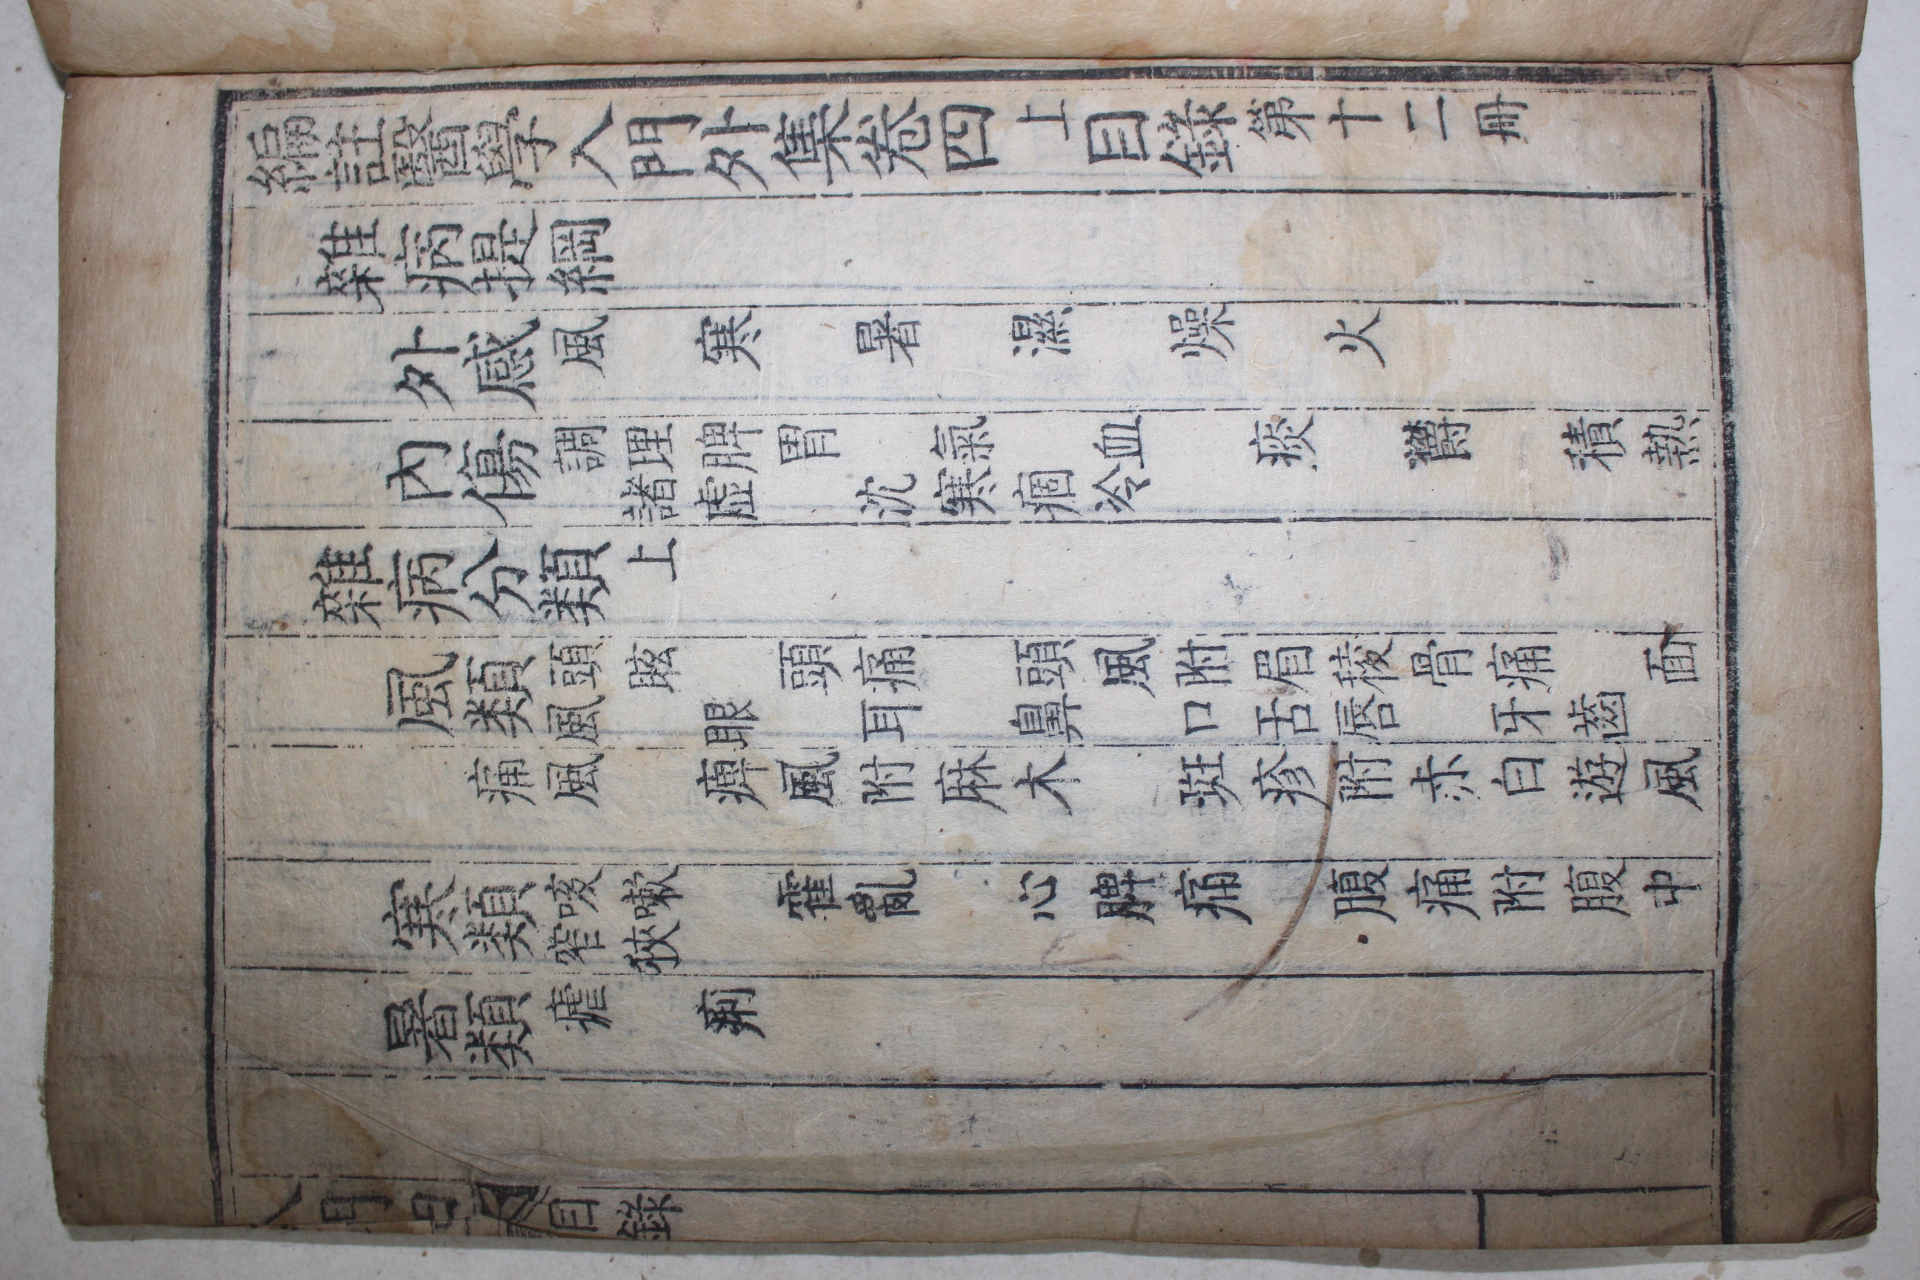 編註醫學入門外集卷四上目錄第十二冊
雜病提綱
外感 風 寒 暑 濕 燥 火
內傷 調理脾胃 氣 血 痰 鬱 積熱
諸虛 沈寒痼冷
雜病分類上
風類 頭眩 頭痛 頭風附眉稜骨痛 面
風 眼 耳 鼻 口舌唇 牙齒
痛風 痺風附麻木 斑疹附赤白遊風
寒類 咳嗽 霍亂 心脾痛 腹痛附腹中
窄狹
暑類 瘧 痢
目錄